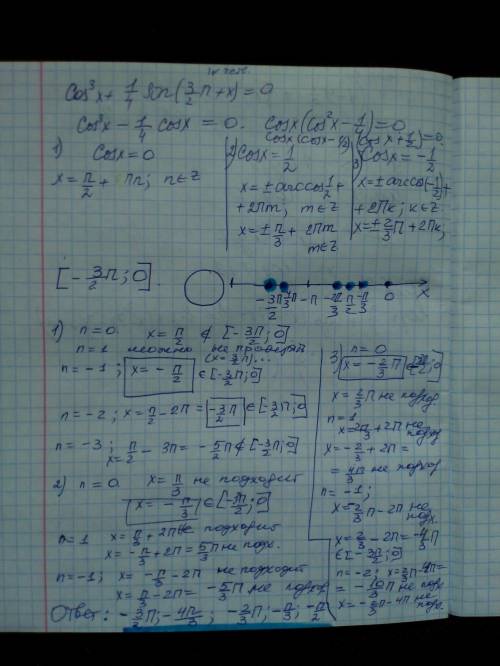 Cos³x + 1/4 Sin(3/2 π + x) = 0
Cos³x - 1/4 cosx = 0. Cosx(Cos²x - 1/4) = 0
Cosx(cosx - 1/2)(cosx + 1/2) = 0.
1) Cosx = 0
x = π/2 + πn; n∈Z
2) Cosx = 1/2
x = ± arccos 1/2 +
+ 2πm, m∈Z
x = ± π/3 + 2πm
m∈Z
3) Cosx = -1/2
x = ± arccos(-1/2) +
+ 2πk; k∈Z
x = ± 2/3 π + 2πk,
[-3/2 π; 0].
-3π/2 -π 0 x
1) n=0. x = π/2 ∉ [-3π/2; 0]
n=1 можно не проверять
(x = 3/2 π)...
n=-1; x = -π/2 ∈ [-3/2 π; 0]
n=-2; x = π/2 - 2π = -3/2 π ∈ [-3/2 π; 0]
n=-3; x = π/2 - 3π = -5/2 π ∉ [-3/2 π; 0]
2) n=0. x = π/3 не подходит
x = -π/3 ∈ [-3π/2; 0]
n=1 x = π/3 + 2π не подходит
x = -π/3 + 2π = 5/3 π не подх.
n=-1; x = -π/3 - 2π не подходит
x = π/3 - 2π = -5/3 π не подход
3) n=0
x = -2/3 π ∈ [-3π/2; 0]
x = 2/3 π не подход.
n=1
x = 2π/3 + 2π не подход
x = -2/3 + 2π =
= 4π/3 не подход
n=-1;
x = -2/3 π - 2π не подх.
x = 2/3 π - 2π = -4/3 π
∈ [-3π/2; 0]
n=-2; x = 2/3 π - 4π =
= -10/3 π не подх.
x = -2/3 π - 4π не подх.
Ответ: -3/2 π; -4π/3; -2/3 π; -π/3; -π/2